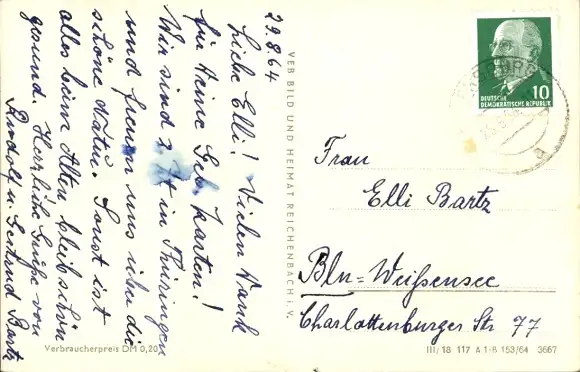 29.8.64
Liebe Elli! Vielen Dank
für Deine Geb. karten!
Wir sind z. Zt. in Thüringen
und freuen uns über die
schöne Natur. Sonst ist
alles beim Alten bleib schön
gesund. Herzliche Grüße von
Rudolf u. Gertrud Bartz
Verbraucherpreis DM 0,20
VEB BILD UND HEIMAT REICHENBACH i. V.
10
DEUTSCHE
DEMOKRATISCHE REPUBLIK
a
Frau
Elli Bartz
Bln=Weißensee
Charlottenburger Str 77
III/18 117 A 1-B 153/64 3667